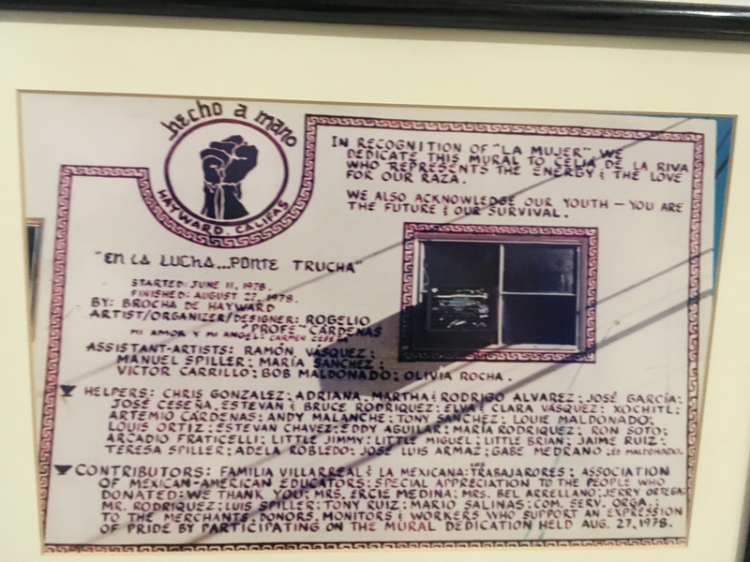 hecho a mano
HAYWARD, CALIFAS
IN RECOGNITION OF "LA MUJER" WE
DEDICATE THIS MURAL TO CELIA DE LA RIVA
WHO REPRESENTS THE ENERGY & THE LOVE
FOR OUR RAZA.
WE ALSO ACKNOWLEDGE OUR YOUTH — YOU ARE
THE FUTURE & OUR SURVIVAL.
"EN LA LUCHA...PONTE TRUCHA"
STARTED: JUNE 11, 1978.
FINISHED: AUGUST 27, 1978.
BY: BROCHA DE HAYWARD
ARTIST/ORGANIZER/DESIGNER: ROGELIO
"PROFE" CÁRDENAS
MI AMOR Y MI ANGEL: CARMEN
ASSISTANT-ARTISTS: RAMÓN VÁSQUEZ;
MANUEL SPILLER; MARÍA SÁNCHEZ;
VICTOR CARRILLO; BOB MALDONADO; OLIVIA ROCHA.
HELPERS: CHRIS GONZALEZ; ADRIANA, MARTHA & RODRIGO ALVAREZ; JOSÉ GARCÍA;
JOSÉ CESEÑA; ESTEVAN & BRUCE RODRIQUEZ; ELVA & CLARA VÁSQUEZ; XOCHITL;
ARTEMIO CÁRDENAS; ANDY MALANCHE; TONY SÁNCHEZ; LOUIE MALDONADO;
LOUIS ORTIZ; ESTEVAN CHAVEZ; EDDY AGUILAR; MARÍA RODRIQUEZ; RON SOTO;
ARCADIO FRATICELLI; LITTLE JIMMY; LITTLE MIGUEL; LITTLE BRIAN; JAIME RUIZ;
TERESA SPILLER; ADELA ROBLEDO; JOSÉ LUIS ARMAZ; GABE MEDRANO; LES MALDONADO.
CONTRIBUTORS: FAMILIA VILLARREAL & LA MEXICANA; LOS TRABAJARORES; ASSOCIATION
OF MEXICAN-AMERICAN EDUCATORS; SPECIAL APPRECIATION TO THE PEOPLE WHO
DONATED: WE THANK YOU; MRS. ERCIE MEDINA; MRS. BEL ARRELLANO; JERRY ORTEGA;
MR. RODRIQUEZ; LUIS SPILLER; TONY RUIZ; MARIO SALINAS; COM. SERV. ORGA.;
TO THE MERCHANTS, DONORS, MONITORS & WORKERS WHO SUPPORT AN EXPRESSION
OF PRIDE BY PARTICIPATING ON THE MURAL DEDICATION HELD AUG. 27, 1978.